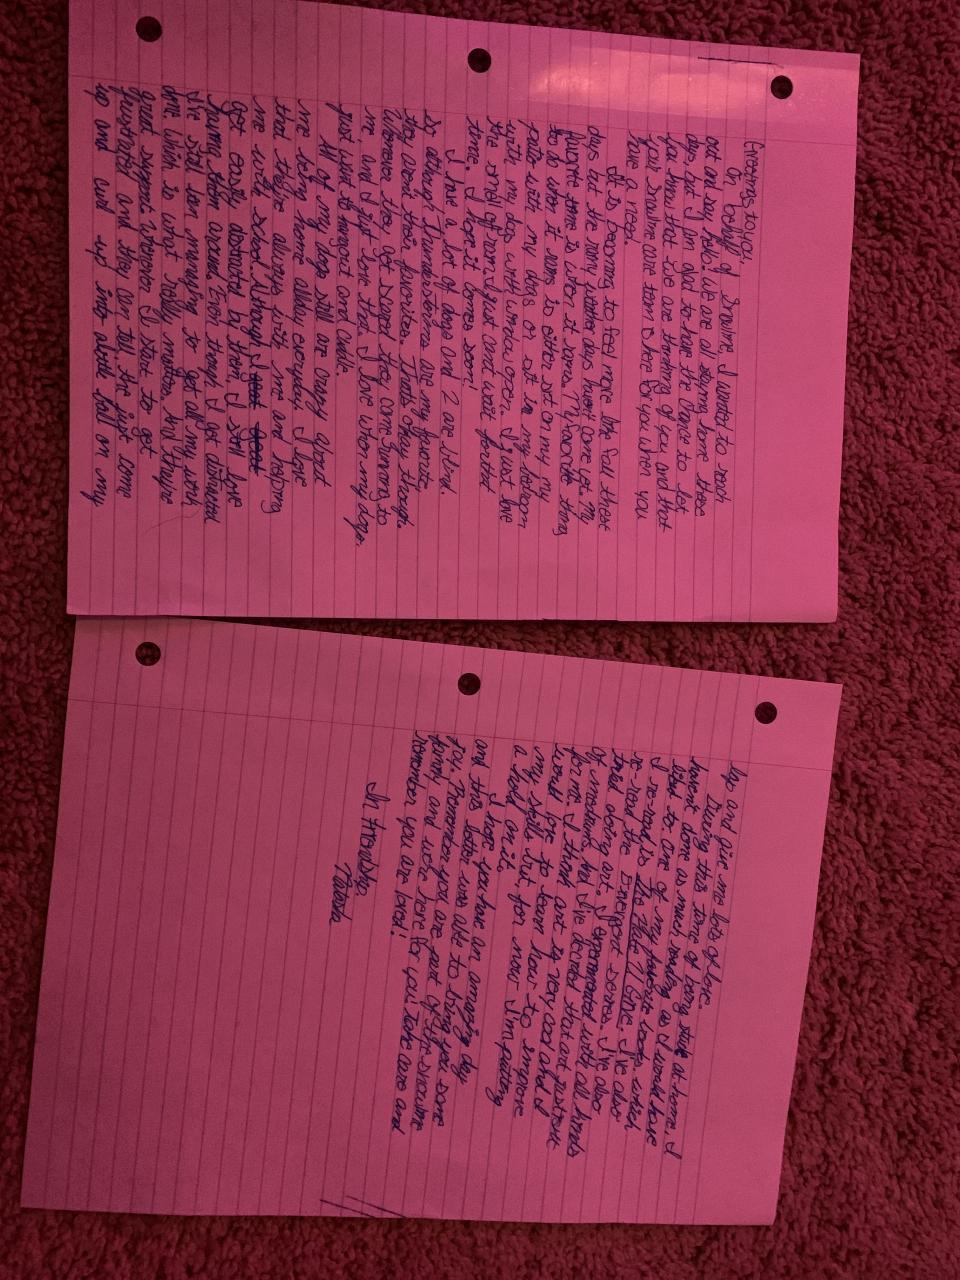 Greetings to you,
On behalf of Snowline, I wanted to reach
out and say hello! We are all staying home these
days but I am glad to have the chance to let
you know that we are thinking of you and that
your Snowline care team is here for you when you
have a need.
It is beginning to feel more like fall these
days but the rainy fall days haven't come yet. My
favorite time is when it rains. My favorite thing
to do when it rains is either sit on my
patio with my dogs or sit in my bedroom
with my dogs with window open. I just love
the smell of rain. I just cant wait for that
time. I hope it comes soon!
I have a lot of dogs and 2 are blind.
So although Thunderstorms are my favorite
they aren't their favorites. Thats okay though
whenever they get scared they come running to
me, and I just love that. I love when my dogs
just want to hangout and cuddle.
All of my dogs still are crazy about
me being home allday everyday! I love
that they're always with me and helping
me with school! Although I
get easily distracted by them, I still love
having them around. Even though I get distracted
I've still been managing to get all my work
done which is what really matters. And they're
great support whenever I start to get
frustrated and they can tell the just come
up and curl up into alittle ball on my
lap and give me lots of love.
During this time of being stuck at home, I
havent done as much reading as I would have
liked to. One of my favorite books which
I re-read is The Hate U Give. I've also
re-read the Divergent series. I've also
tried doing art. I experimented with all kinds
of mediums, but I've decided that art just isnt
for me. I think art is very cool and I
would love to learn how to improve
my skills but, for now I'm putting
a hold on it.
I hope you have an amazing day
and this letter was able to bring you some
joy. Remember you are part of the snowline
family and we're here for you! Take care and
remember you are loved!
In friendship,
Natasha